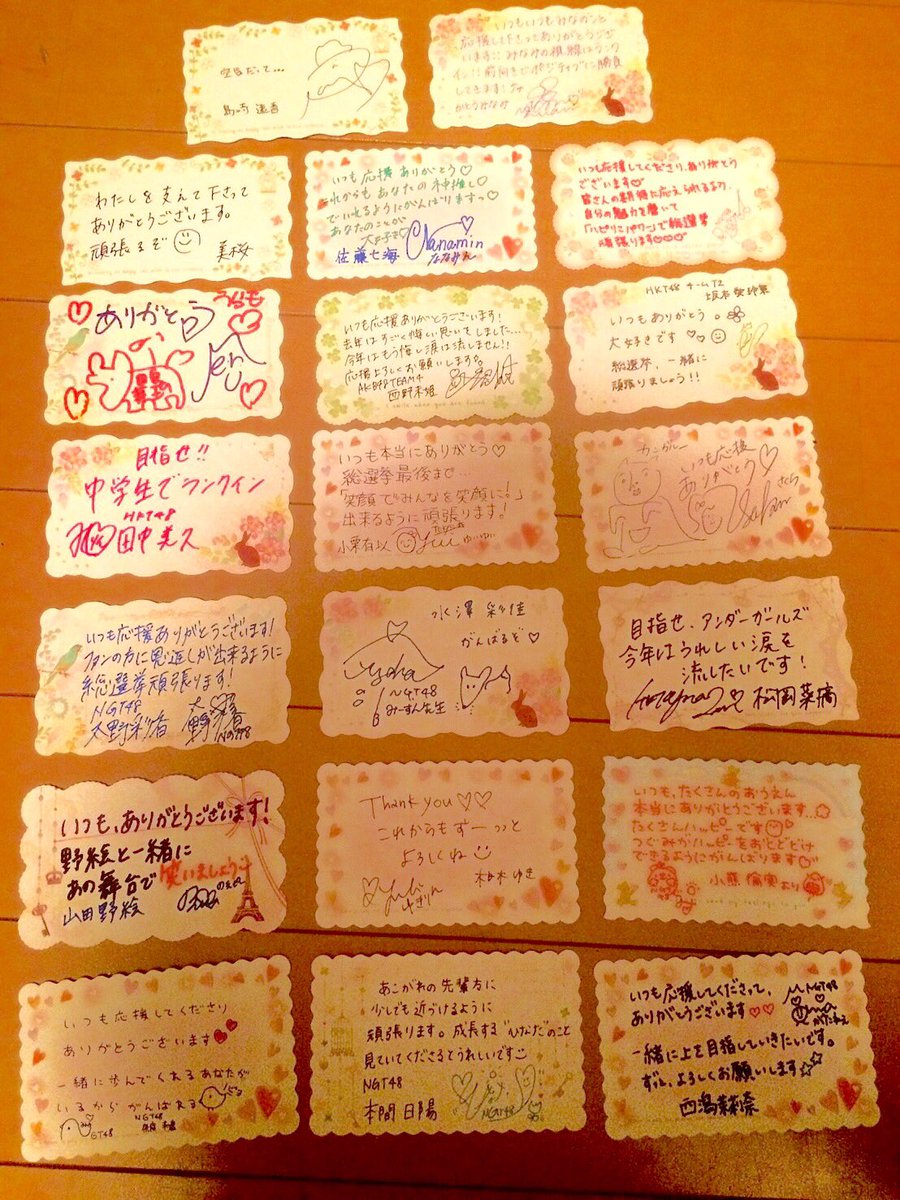 島崎遥香
いつもいつもみなのこと
応援して下さってありがとうござ
います!! みなみの目標はランク
イン!! 前向きでポジティブに勝負
してきます!!
かとうみなみ
わたしを支えて下さって
ありがとうございます。
頑張るぞ
美桜
いつも応援ありがとう♡
これからもあなたの神推し
でいれるようにがんばりますっ♡
あなたのことが
大好き♡
佐藤七海
Nanamin
ななみん
いつも応援してくださり、ありがとう
ございます♡
皆さんの期待に応えられるよう、
自分の魅力を磨いて
「ハピリコパワー」で総選挙
頑張ります♡♡♡
ありがとう
いつも応援ありがとうございます!
去年はすごく悔しい思いをしました...
今年はもう悔し涙は流しません!!
応援よろしくお願いします。
AKB48 TEAM4
西野未姫
HKT48 チームT2
いつもありがとう。
大好きです♡♡
総選挙、一緒に
頑張りましょう!!
目指せ!!
中学生でランクイン
HKT48
田中美久
いつも本当にありがとう♡
総選挙最後まで...
「笑顔でみんなを笑顔に!」
出来るように頑張ります!
小栗有以
Yui
ゆいゆい
カンガルー
いつも応援
ありがとう♡
さらら
いつも応援ありがとうございます!
ファンの方に恩返しが出来るように
総選挙頑張ります!
NGT48
太野彩香
NGT48
水澤彩佳
がんばるぞ♡
NGT48
みーすん先生
目指せ、アンダーガールズ
今年はうれしい涙を
流したいです!
松岡菜摘
いつも、ありがとうございます!
野絵と一緒に
あの舞台で笑いましょう
山田野絵
のえぴー
Thank you ♡♡
これからもずーっっと
よろしくね
柏木ゆき
ゆきりん
いつも、たくさんのおうえん
本当にありがとうございます...
たくさんハッピーです
つぐみがハッピーをおとどけ
できるようにがんばります♡
小熊倫実より
いつも応援してくださり
ありがとうございます
一緒に歩んでくれるあなたが
いるからがんばれる
NGT48
あこがれの先輩方に
少しでも近づけるように
頑張ります。成長する"ひなた"のこと
見ていてくださるとうれしいです
NGT48
本間日陽
NGT48
いつも応援してくださって、
ありがとうございます♡♡
NGT48
一緒に上を目指していきたいです。
ずっと、よろしくお願いします☆☆
西潟茉莉奈